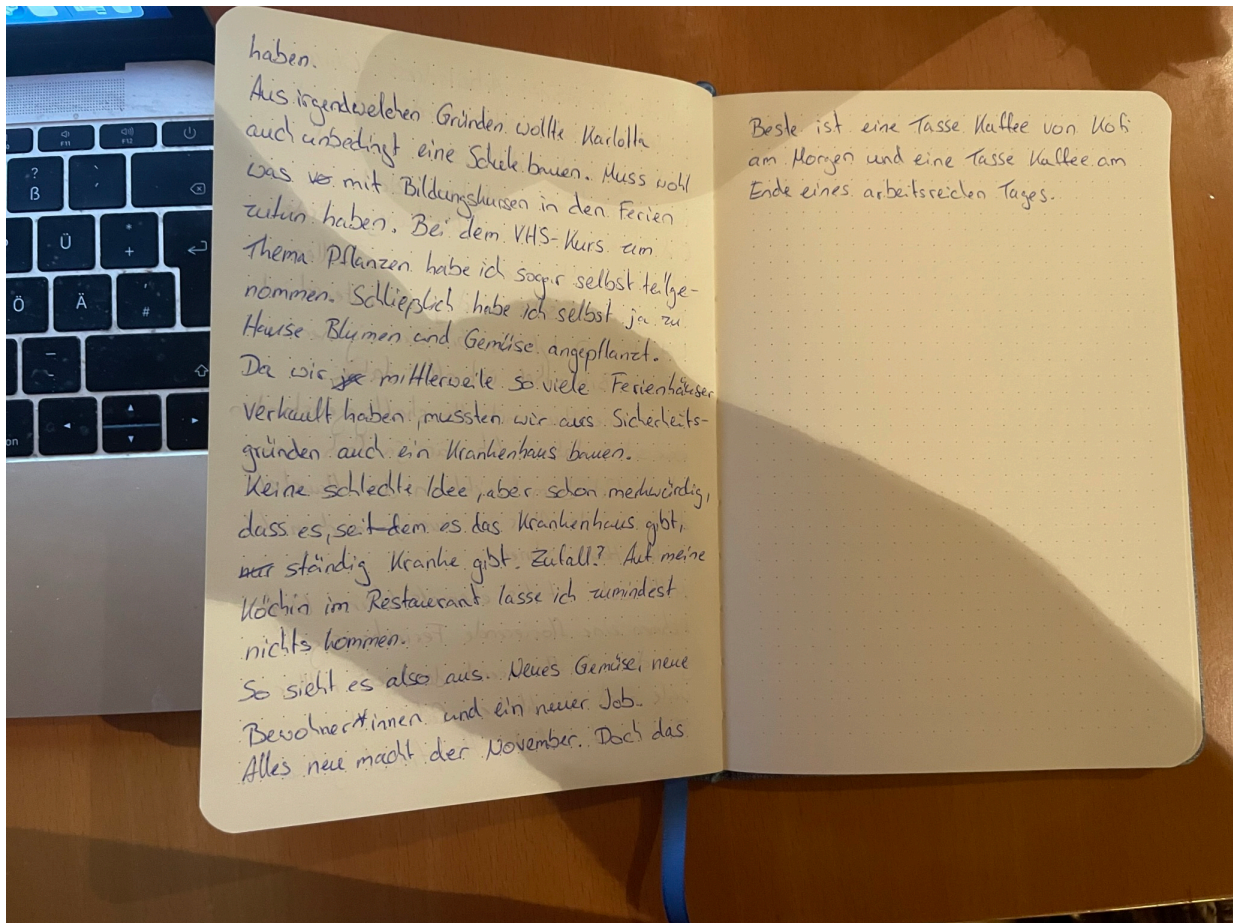 haben.
Aus irgendwelchen Gründen wollte Karlotta
auch unbedingt eine Schule bauen. Muss wohl
was mit Bildungskursen in den Ferien
zutun haben. Bei dem VHS-Kurs zum
Thema Pflanzen habe ich sogar selbst teilge-
nommen. Schließlich habe ich selbst ja zu
Hause Blumen und Gemüse angepflanzt.
Da wir mittlerweile so viele Ferienhäuser
verkauft haben, mussten wir aus Sicherheits-
gründen auch ein Krankenhaus bauen.
Keine schlechte Idee, aber schon merkwürdig,
dass es, seitdem es das Krankenhaus gibt,
ständig Kranke gibt. Zufall? Auf meine
Köchin im Restaurant lasse ich zumindest
nichts kommen.
So sieht es also aus. Neues Gemüse, neue
Bewohner*innen und ein neuer Job.
Alles neu macht der November. Doch das
Beste ist eine Tasse Kaffee von Kofi
am Morgen und eine Tasse Kaffee am
Ende eines arbeitsreichen Tages.
F11
F12
?
ß
Ü
*
+
Ö
Ä
'
#